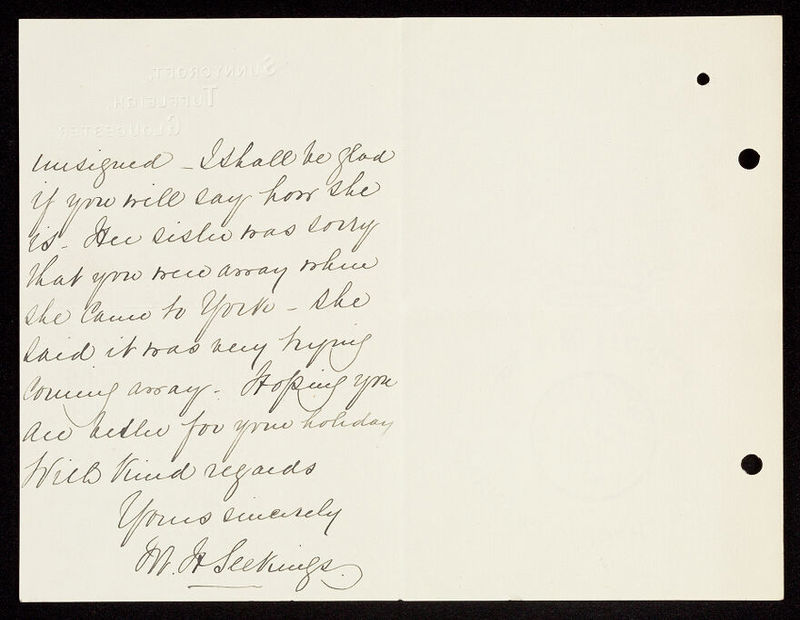 SUNNYCROFT,
TUFFLEIGH,
GLOUCESTER
unsigned - I shall be glad
if you will say how she
is. Her sister was sorry
that you were away when
she came to York - she
said it was very trying
coming away. Hoping you
are better for your holiday
With kind regards
Yours sincerely
M. H Seekings.